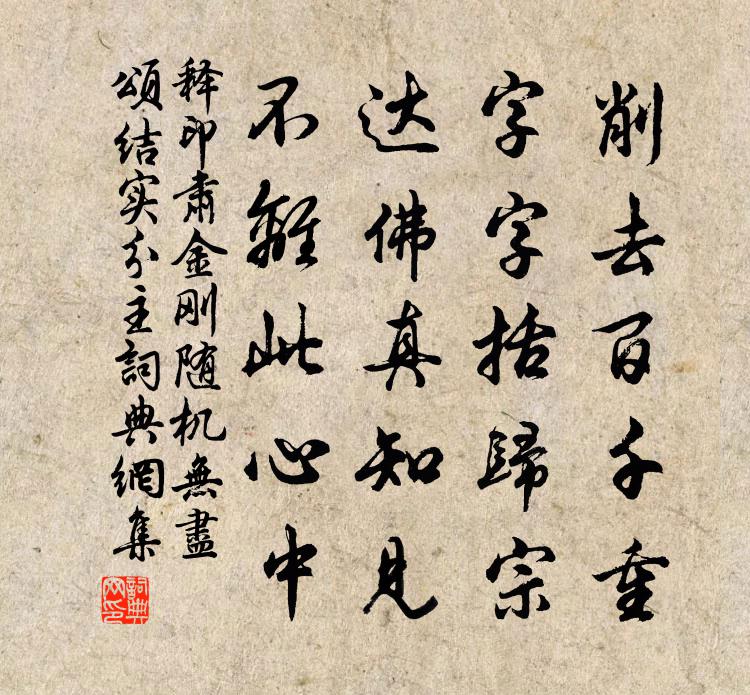 削去百千重
字字括歸宗
达佛真知見
不離此心中
释印肃金刚随机無盡
頌结实分主詞典網集
詞典网印